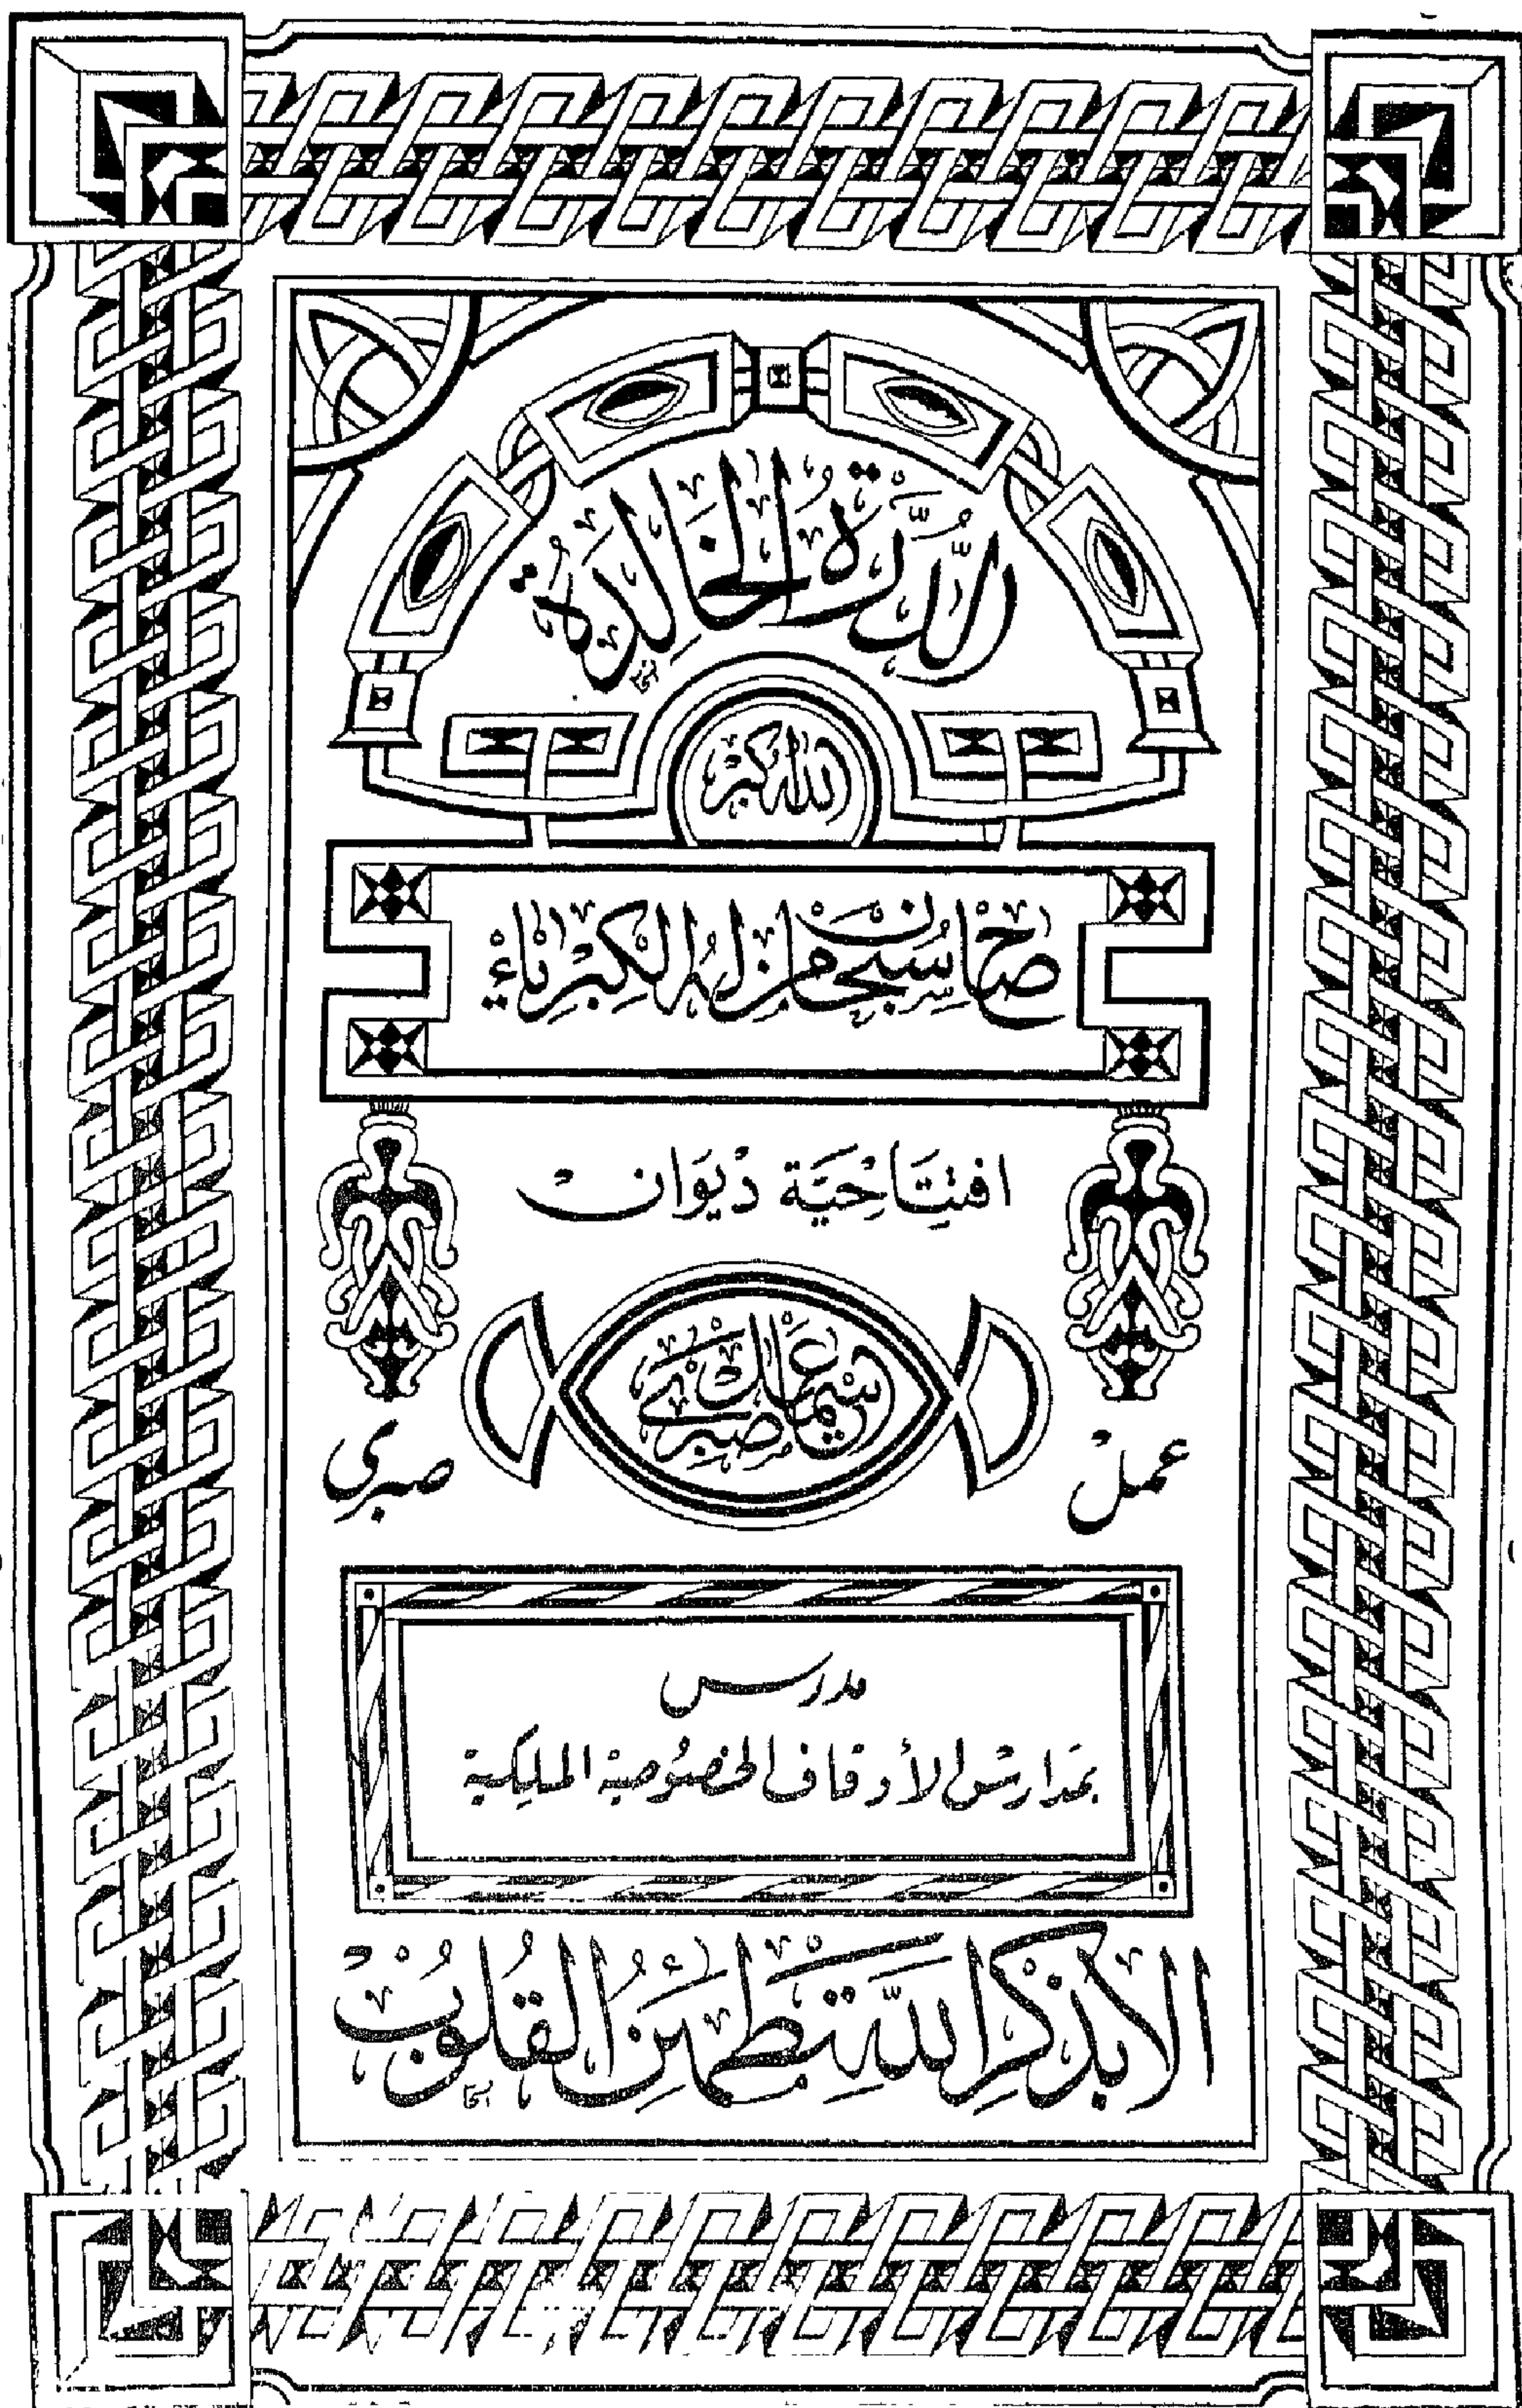 الدُّرَّةُ الْخَالِدَةُ
الله أكبر
صَاحِ سُبْحَانَ مَنْ لَهُ الْكِبْرِيَاءُ
افْتِتَاحِيَّة دِيْوَانْ
إسماعيل صبري
عمل صبري
مدرس
بمَدارسْ الأوقاف الخصُوصية الملِكية
الا بِذِكْرِ اللَّه تَطْمَئِنُّ الْقُلُوبُ